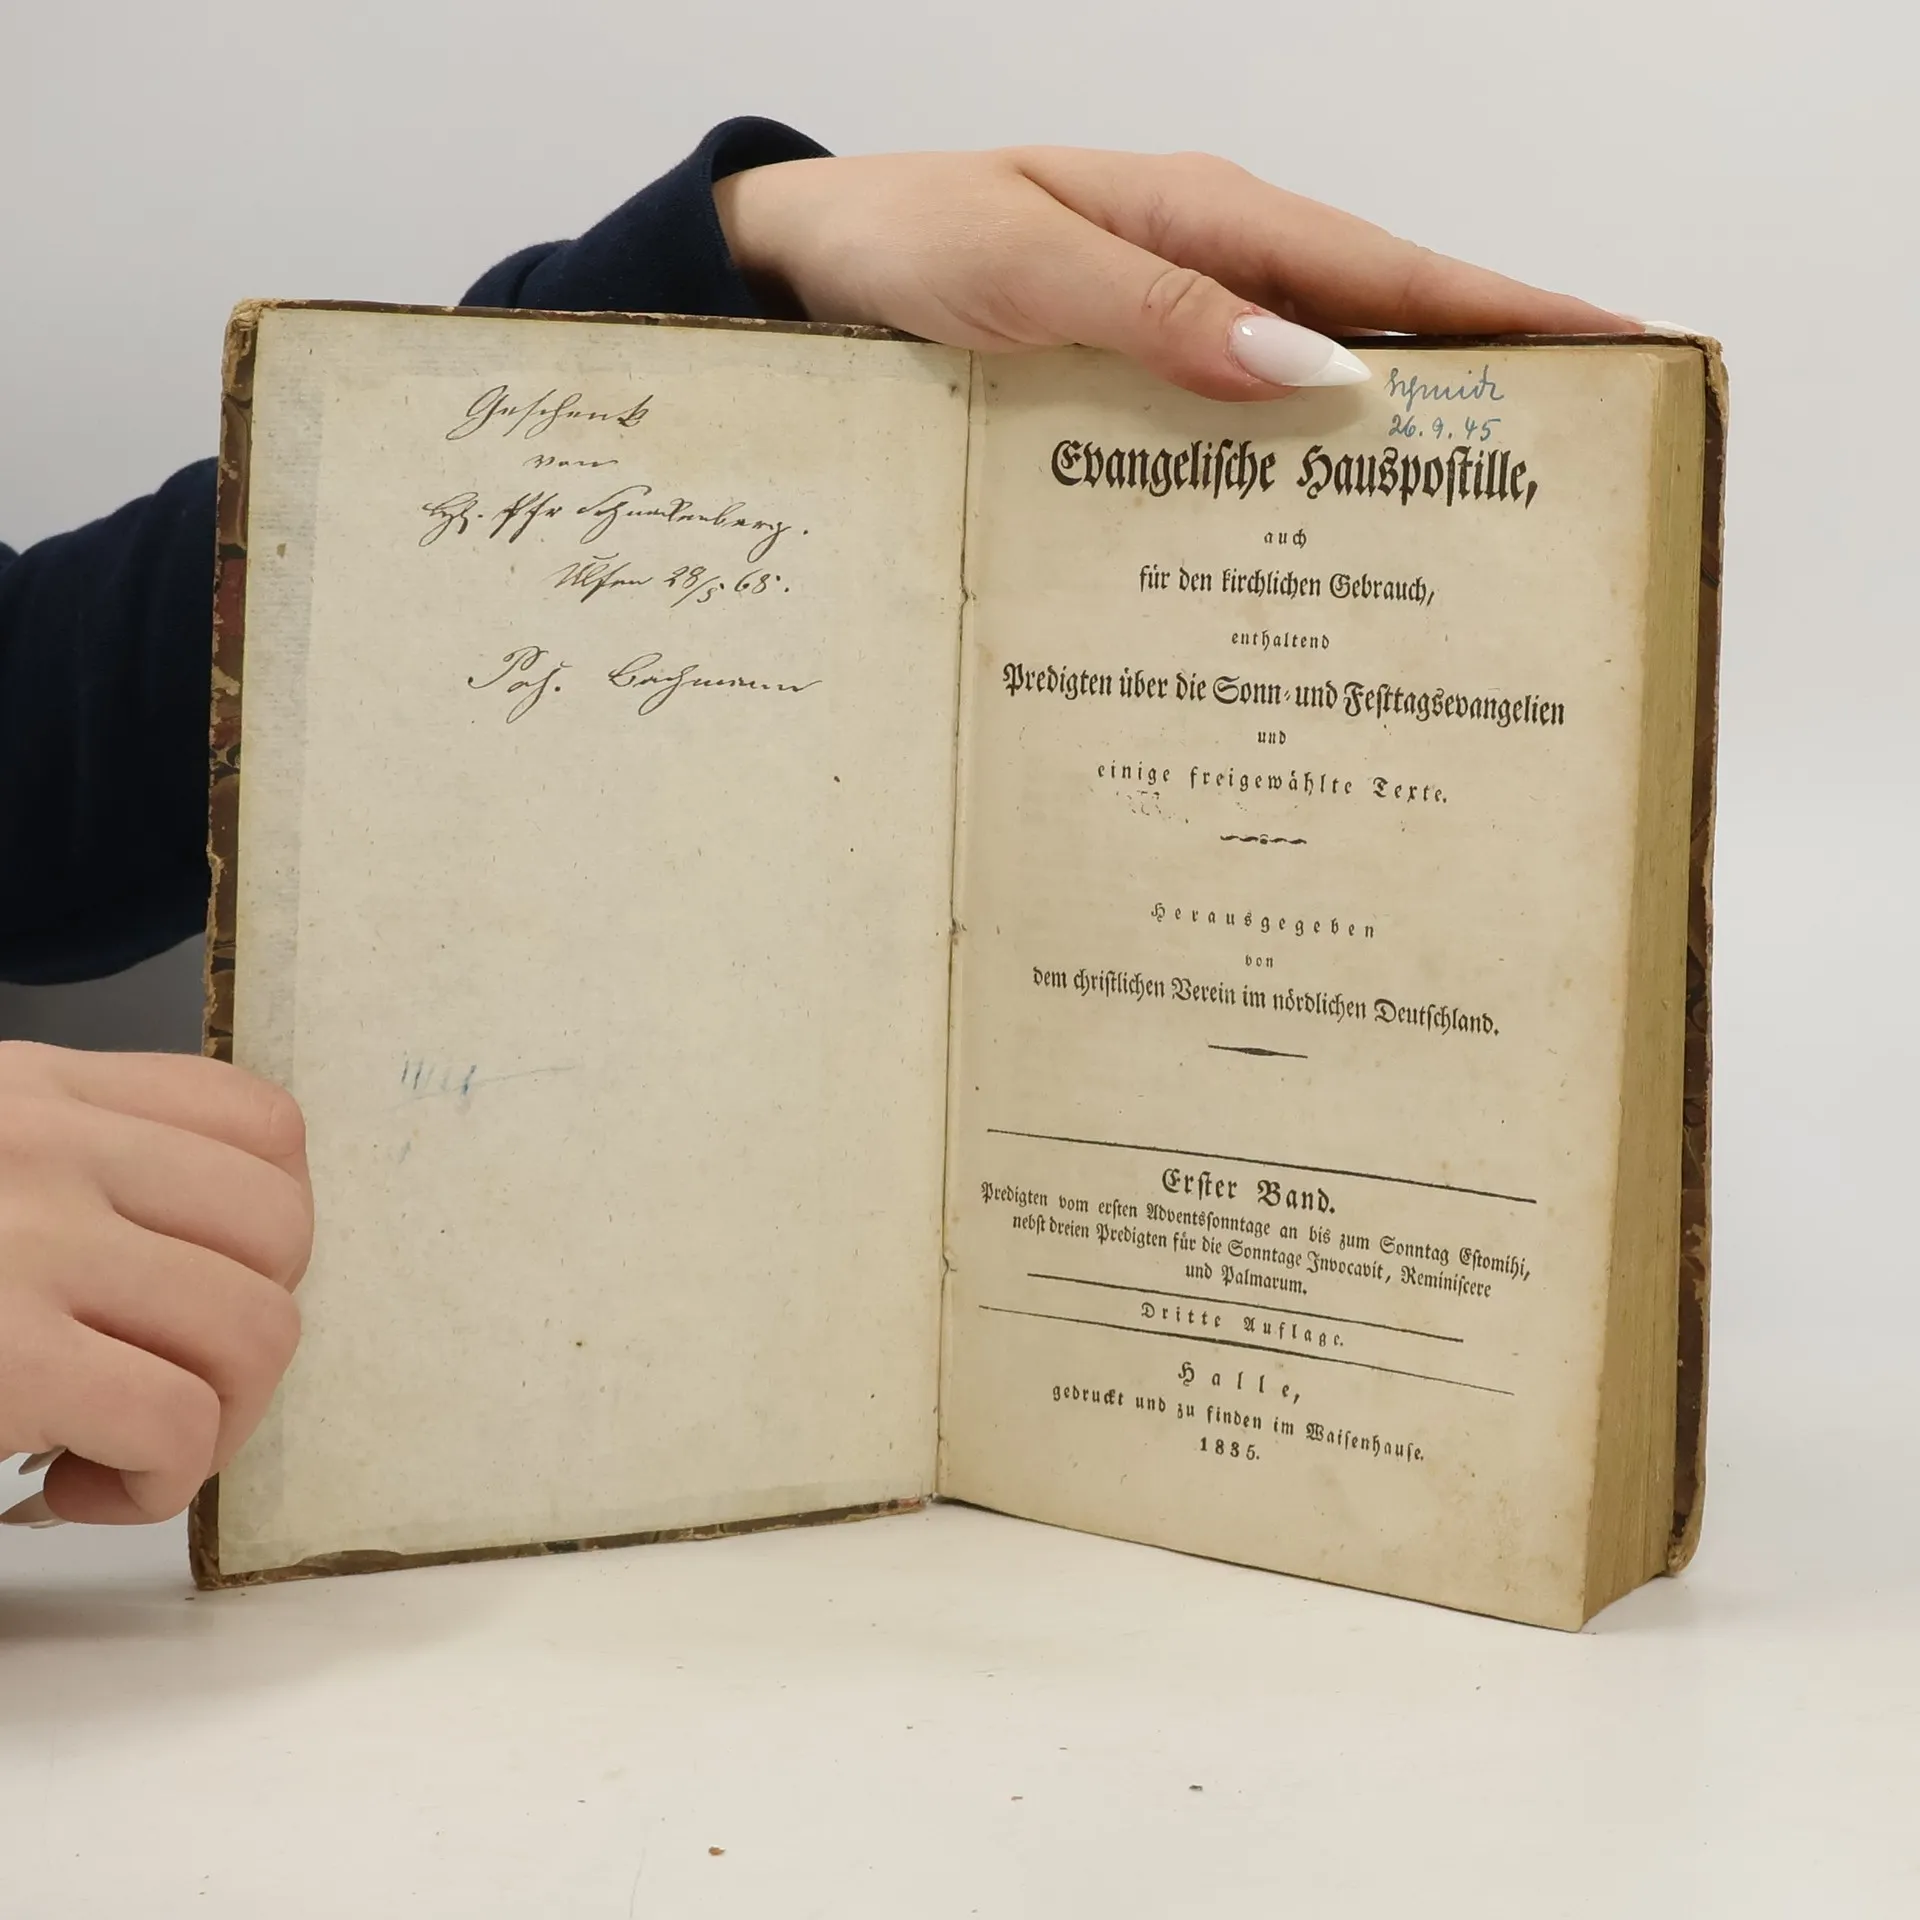 Geschenk
von
Pfr Schnackenberg.
28/5 68.
Joh. Bachmann
Schmidt
26. 9. 45
Evangeliſche Hauspoſtille,
auch
für den kirchlichen Gebrauch,
enthaltend
Predigten über die Sonn- und Feſttagsevangelien
und
einige freigewählte Texte.
Herausgegeben
von
dem chriſtlichen Verein im nördlichen Deutſchland.
Erſter Band.
Predigten vom erſten Adventsſonntage an bis zum Sonntag Eſtomihi,
nebſt dreien Predigten für die Sonntage Invocavit, Reminiſcere
und Palmarum.
Dritte Auflage.
Halle,
gedruckt und zu finden im Waiſenhauſe.
1835.